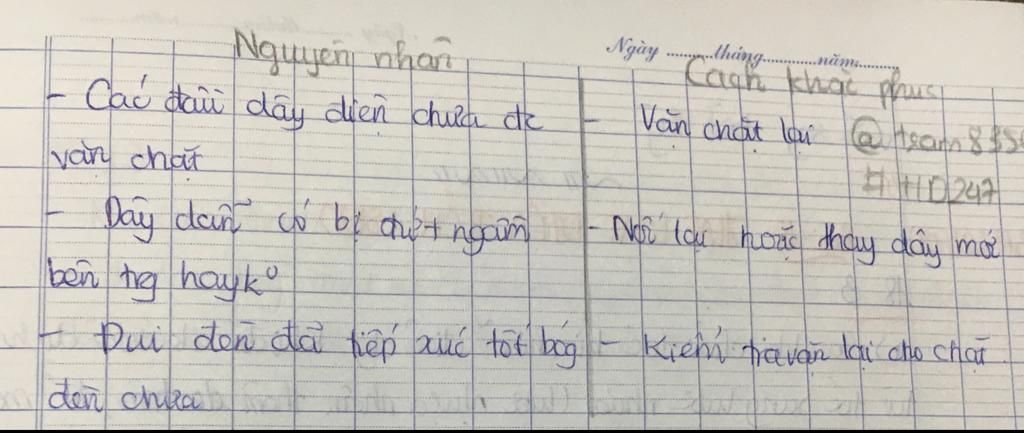 Ngày ........tháng............năm........
Nguyên nhân
Cách khắc phục
- Các đầu dây điện chưa đc
vặn chặt
- Vặn chặt lại
@team8386
#HD247
- Dây dẫn có bị đứt ngầm
bên tg hay k°
- Nối lại hoặc thay dây mới
- Đui đèn đã tiếp xúc tốt bóg
đèn chưa
- Kiểm tra vặn lại cho chặt